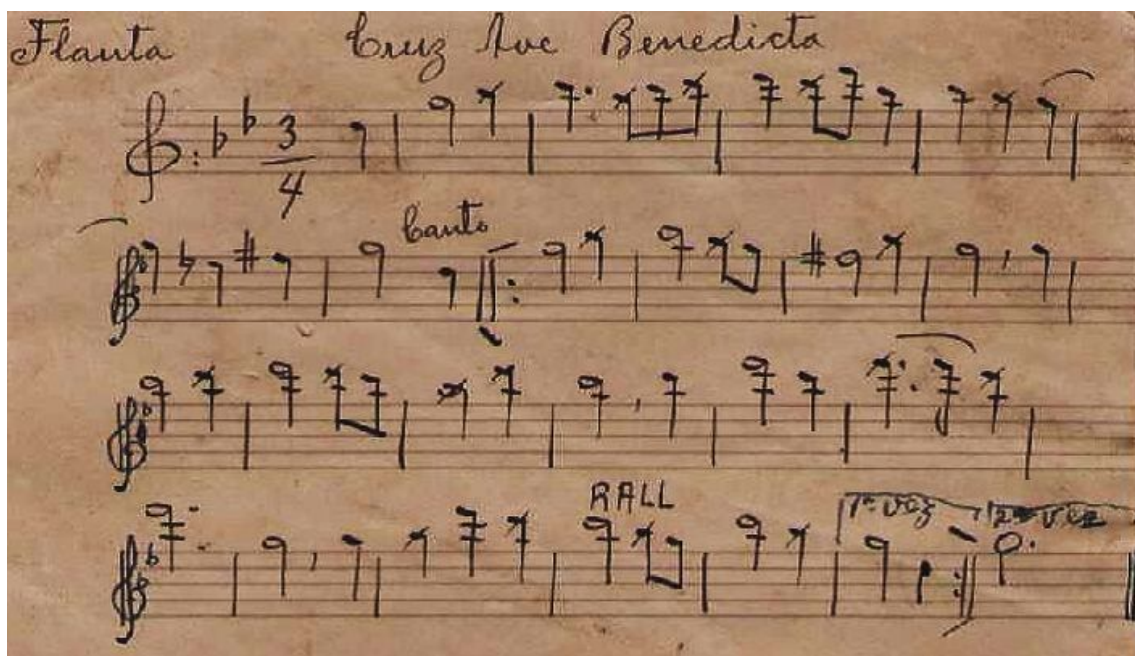 Flauta Cruz Ave Benedicta
3
4
Canto
RALL
1ª vez 2ª vez